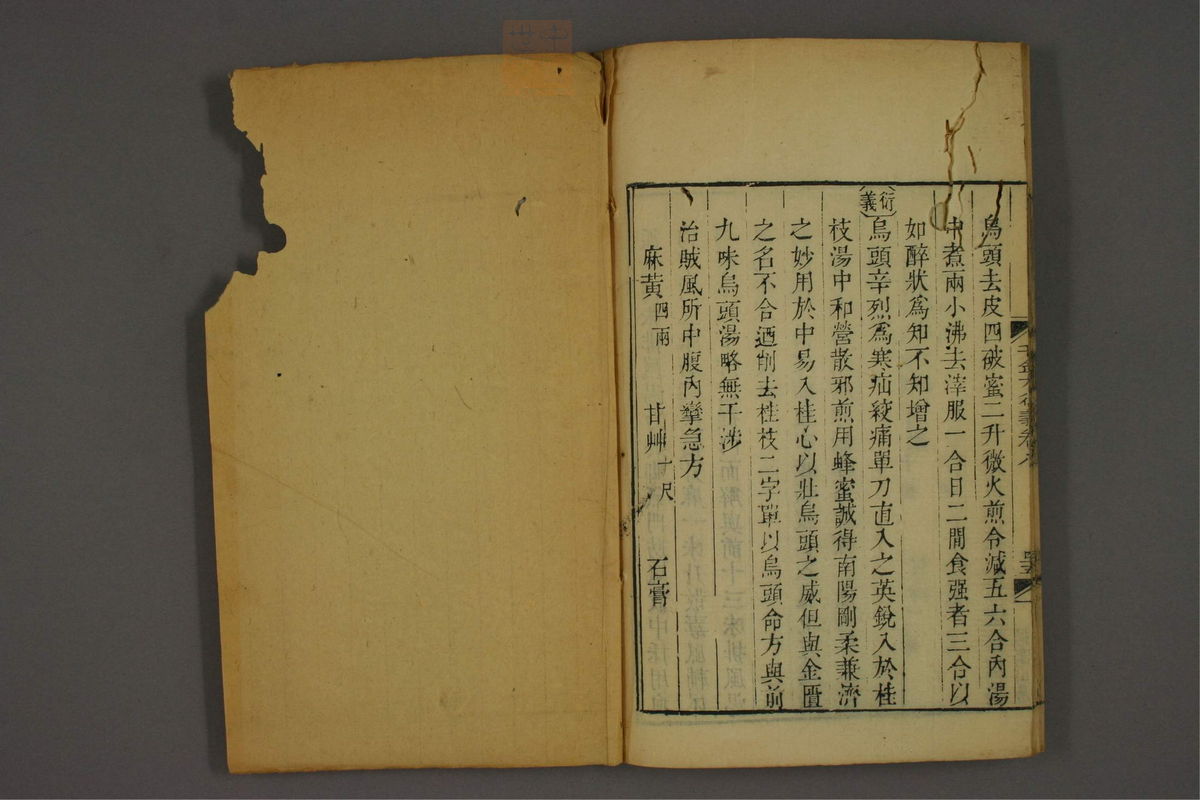 烏頭去皮四破蜜二升微火煎令減五六合內湯
中煮兩小沸去滓服一合日二間食强者三合以
如醉狀爲知不知增之
衍義
烏頭辛烈爲寒疝絞痛單刀直入之英銳入於桂
枝湯中和營散邪煎用蜂蜜誠得南陽剛柔兼濟
之妙用於中易入桂心以壯烏頭之威但與金匱
之名不合迺削去桂枝二字單以烏頭命方與前
九味烏頭湯略無干涉
治賊風所中腹內攣急方
麻黃四兩 甘艸一尺 石膏
千金方衍義卷八